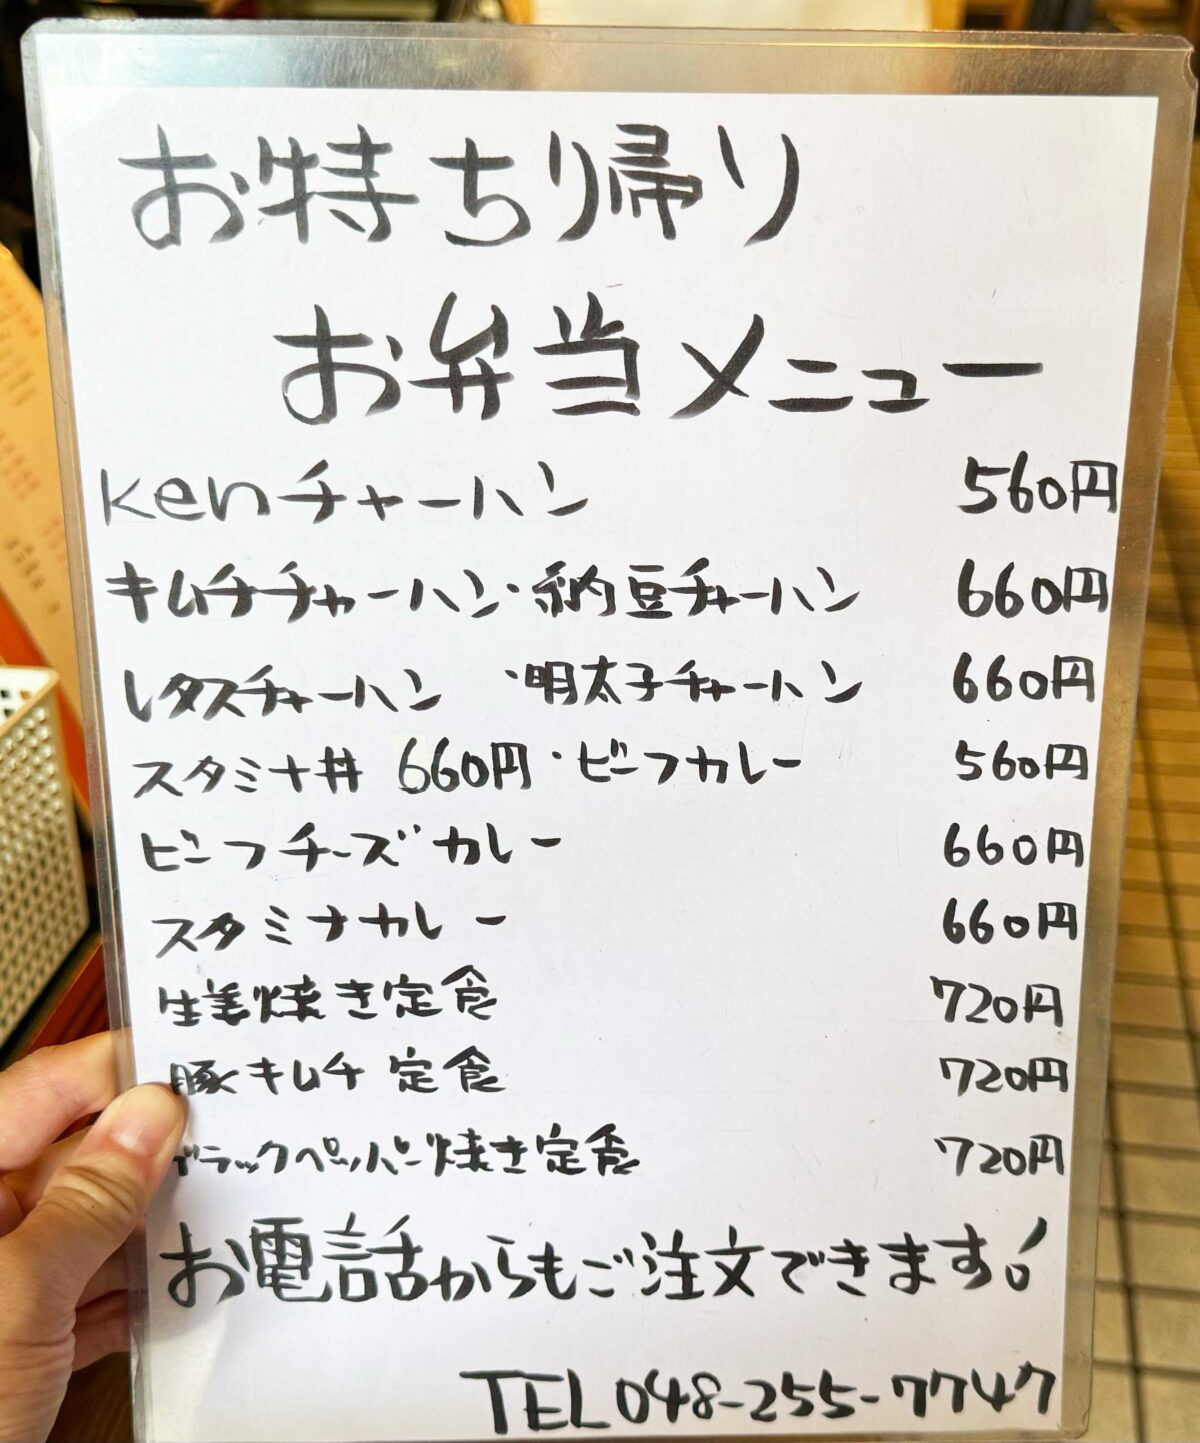 お持ち帰り
お弁当メニュー
Kenチャーハン 560円
キムチチャーハン・納豆チャーハン 660円
レタスチャーハン ・明太子チャーハン 660円
スタミナ丼 660円・ビーフカレー 560円
ビーフチーズカレー 660円
スタミナカレー 660円
生姜焼き定食 720円
豚キムチ定食 720円
ブラックペッパー焼き定食 720円
お電話からもご注文できます!
TEL048-255-7747